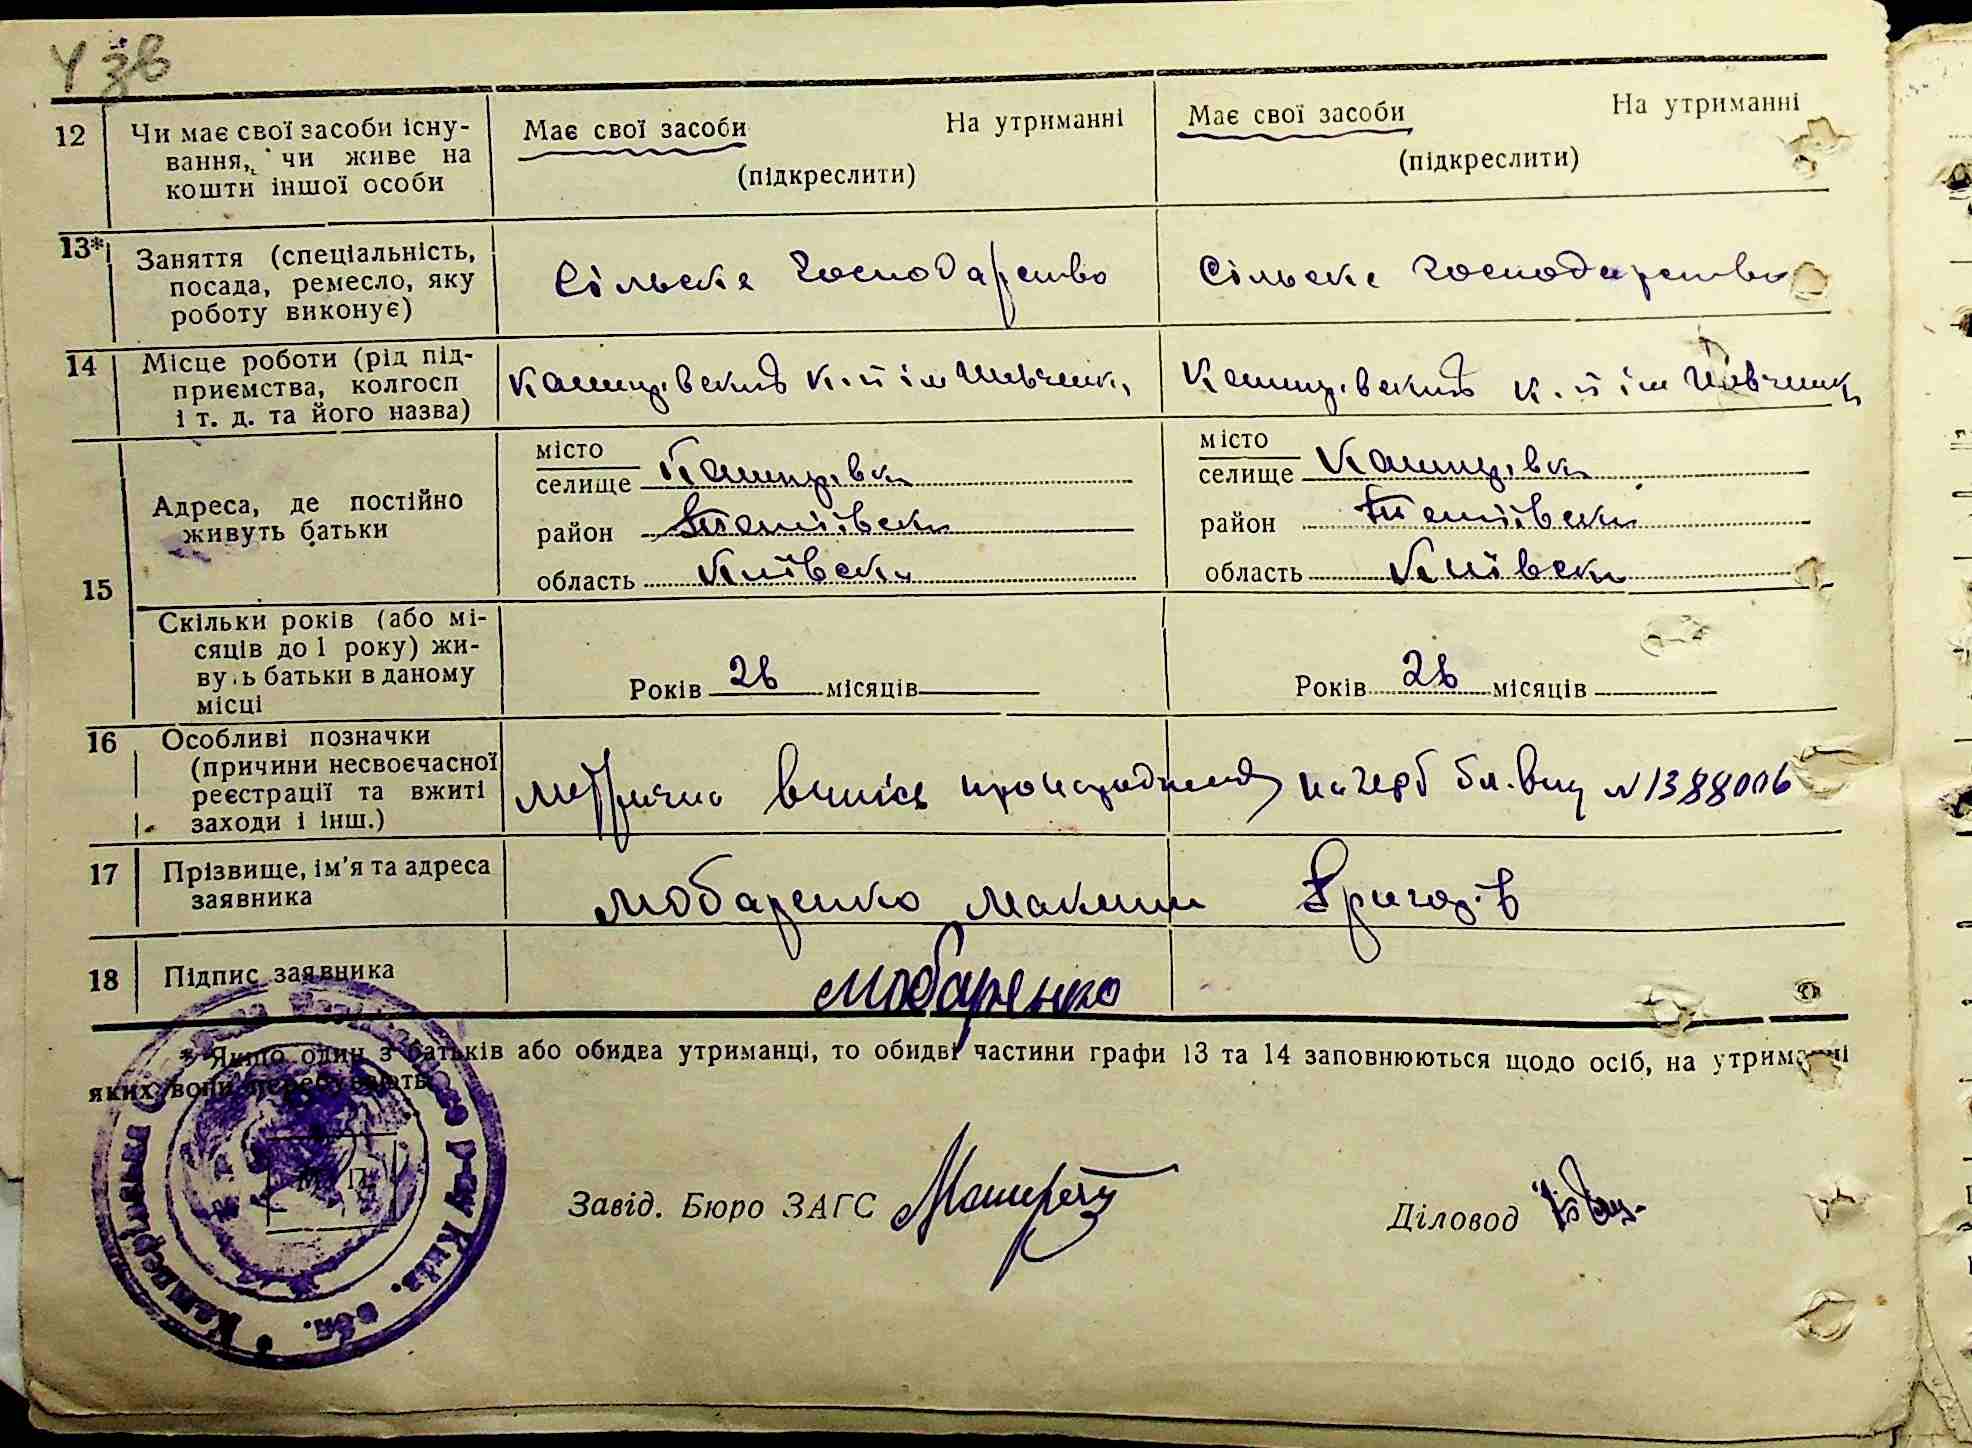 12 Чи має свої засоби існу-
вання, чи живе на
кошти іншої особи
Має свої засоби На утриманні
(підкреслити)
Має свої засоби На утриманні
(підкреслити)
13* Заняття (спеціальність,
посада, ремесло, яку
роботу виконує)
Сільске господарство
Сільске господарство
14 Місце роботи (рід під-
приємства, колгосп
і т. д. та його назва)
ім Шевченка
ім Шевченка
15 Адреса, де постійно
живуть батьки
місто
селище
район
область Київська
місто
селище
район
область Київська
Скільки років (або мі-
сяців до 1 року) жи-
вуть батьки в даному
місці
Років 26 місяців
Років 26 місяців
16 Особливі позначки
(причини несвоєчасної
реєстрації та вжиті
заходи і інш.)
вишіс на герб бл. N 1388006
17 Прізвище, ім'я та адреса
заявника
Мобаренко Максим Григорів
18 Підпис заявника
Мобаренко
* Якщо один з батьків або обидва утриманці, то обидві частини графи 13 та 14 заповнюються щодо осіб, на утриманні
яких вони перебувають
М. П.
р-ну Київ. обл.
Завід. Бюро ЗАГС
Діловод